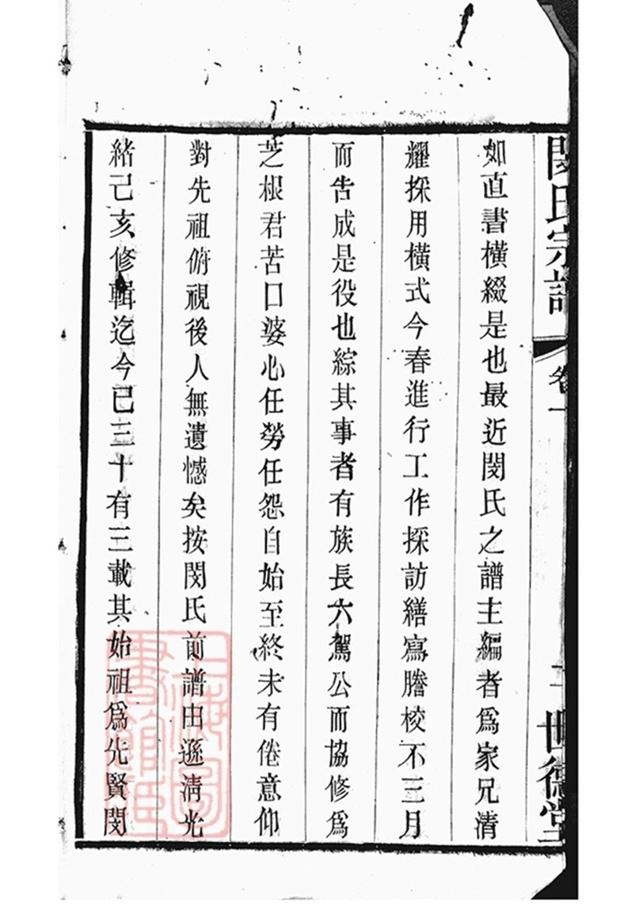 閔氏宗譜
卷一
二
世德堂
如直書橫綴是也最近閔氏之譜主編者爲家兄清
耀採用橫式今春進行工作採訪繕寫謄校不三月
而告成是役也綜其事者有族長六駕公而協修爲
芝根君苦口婆心任勞任怨自始至終未有倦意仰
對先祖俯視後人無遺憾矣按閔氏前譜由遜清光
緒己亥修輯迄今已三十有三載其始祖爲先賢閔
上海圖
書館藏